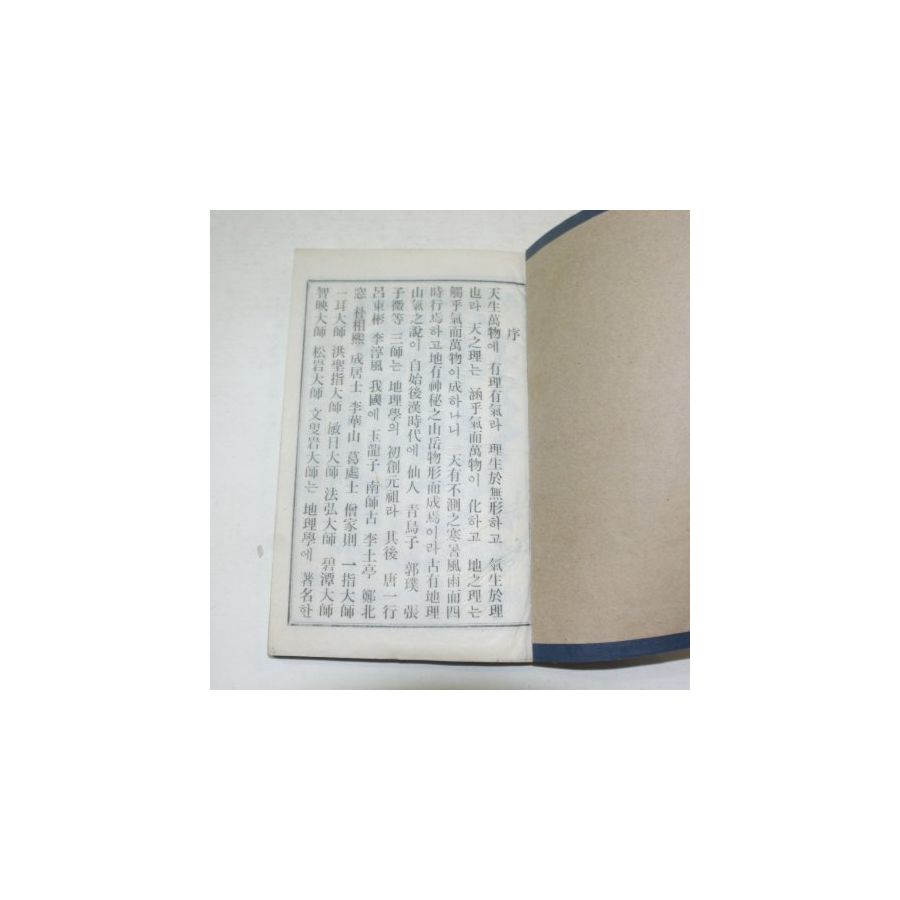 序
天生萬物에 有理有氣라 理生於無形하고 氣生於理
也라 天之理는 涵乎氣而萬物이 化하고 地之理는
觸乎氣而萬物이成하나니 天有不測之寒暑風雨而四
時行焉하고地有神秘之山岳物形而成焉이라古有地理
山氣之說이 自始後漢時代에 仙人 靑烏子 郭璞 張
子微等 三師는 地理學의 初創元祖라 其後 唐一行
呂東彬 李淳風 我國에 玉龍子 南師古 李土亭 鄭北
窓 朴相熙 成居士 李華山 葛處士 僧家則 一指大師
一耳大師 洪聖指大師 敏日大師 法弘大師 碧潭大師
智映大師 松岩大師 文叟岩大師는 地理學에 著名한